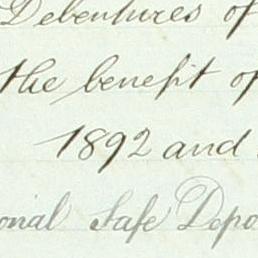 Debentures of
the benefit of
1892 and
onal Safe Depo